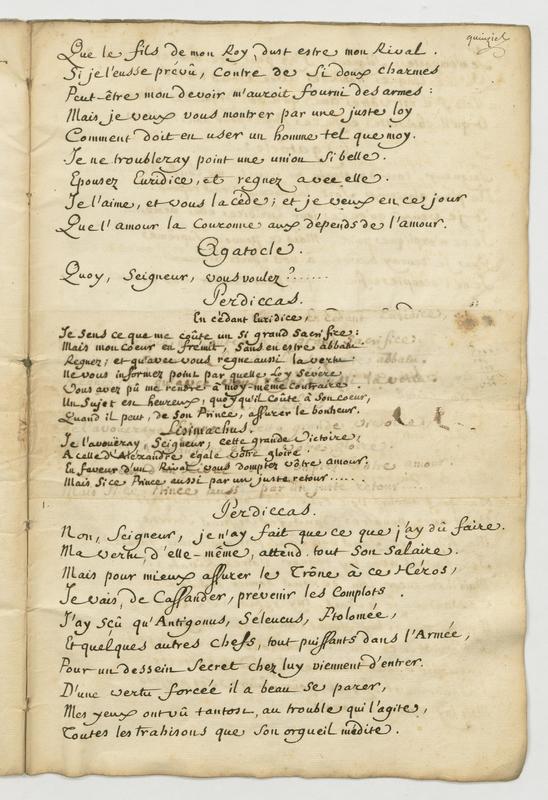 quinziéᵉ
Que le fils de mon Roy, dust estre mon Rival.
Si je l'eusse prévû, contre de si doux charmes
Peut-être mon devoir m'auroit fourni des armes:
Mais, je veux vous montrer par une juste loy
Comment doit en user un homme tel que moy.
Je ne troubleray point une union si belle.
Epousez Euridice, et regnez avec elle.
Je l'aime, et vous la cède; et je veux en ce jour
Que l'amour la Couronne aux dépends de l'amour.
Agatocle.
Quoy, Seigneur, vous voulez?......
Perdiccas.
En cédant Euridice,
Je sens ce que me coûte un si grand sacrifice:
Mais mon coeur en fremit, sans en estre abbatu
Regnez; et qu'avec vous regne aussi la vertu
ne vous informez point par quelle Loy severe
Vous avez pû me rendre à moy-même contraire.
Un Sujet est heureux, quoy qu'il coûte à Son coeur,
Quand il peut, de Son Prince, assurer le bonheur.
Lisimachus.
Je l'avoueray, Seigneur, cette grande Victoire,
A celle d'Alexandre egale vôtre gloire.
En faveur d'un Rival vous domptez vôtre amour.
Mais si ce Prince aussi par un juste retour......
Perdiccas.
Non, Seigneur, je n'ay fait que ce que j'ay dû faire.
Ma vertu, d'elle-même, attend tout Son Salaire.
Mais pour mieux assurer le Trône à ce Héros,
Je vais, de Cassander, prévenir les Complots.
J'ay sçû qu'Antigonus, Séleucus, Ptolomée,
Et quelques autres Chefs, tout puissants dans l'Armée,
Pour un dessein Secret chez luy viennent d'entrer.
D'une vertu forcée il a beau se parer,
Mes yeux ont vû tantost, au trouble qui l'agite,
Toutes les trahisons que Son orgueil médite.